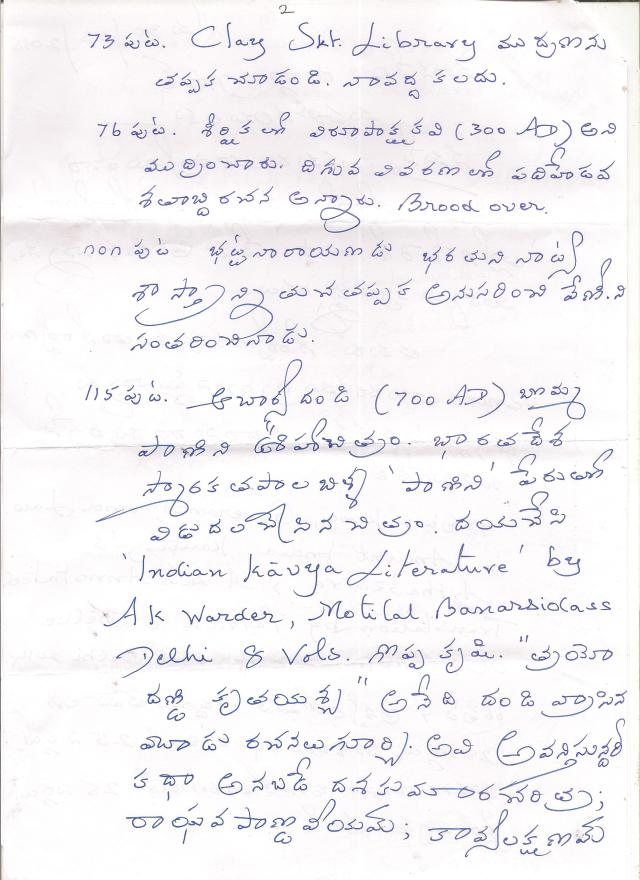 2
73 పుట. Clay Skt. Library ముద్రణను
తప్పక చూడండి. నావద్ద కలదు.
76 పుట. శీర్షికలో విరూపాక్షకవి (300 AD) అని
ముద్రించారు. దిగువ వివరణలో పదిహేడవ
శతాబ్ది రచన అన్నారు. Brood over.
పుట భట్టనారాయణుడు భరతుని నాట్య
శాస్త్రాన్ని తు.చ.తప్పక అనుసరించి వేణీ.ని
సంతరించినాడు.
115 పుట. ఆచార్య దండి (700 AD) బొమ్మ
పాణిని ఊహాచిత్రం. భారతదేశ
స్మారక తపాల బిళ్ళ 'పాణిని' పేరుతో
విడుదల చేసిన చిత్రం. దయచేసి
'Indian Kāvya Literature' by
A K Warder, Motilal Banarsidass
Delhi 8 Vols. గొప్ప కృషి. "త్రయో
దణ్డి కృతయశ్చ" అనేది దండి వ్రాసిన
మూడు రచనలు గూర్చి. అవి అవన్తిసున్దరీ
కథా అనబడే దశకుమారచరిత్ర;
రాఘవపాణ్డవీయమ్; కావ్యలక్షణమ్